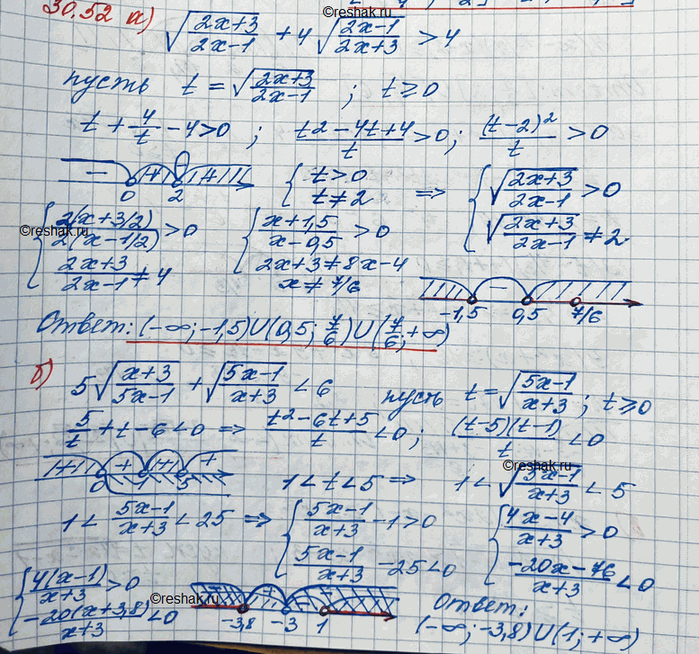 ©reshak.ru
30.52 а) √((2x+3)/(2x-1)) + 4√((2x-1)/(2x+3)) > 4
пусть t = √((2x+3)/(2x-1)) ; t ≥ 0
t + 4/t - 4 > 0 ; (t2 - 4t + 4)/t > 0 ; (t-2)²/t > 0
- + + 0 2 { t > 0 t ≠ 2 ⇒ { √((2x+3)/(2x-1)) > 0 √((2x+3)/(2x-1)) ≠ 2
©reshak.ru
{ 2(x+3/2)/2(x-1/2) > 0 (2x+3)/(2x-1) ≠ 4 { (x+1,5)/(x-0,5) > 0 2x+3 ≠ 8x-4 x ≠ 7/6
- -1,5 0,5 7/6
Ответ: (-∞; -1,5) U (0,5; 7/6) U (7/6; +∞)
б) 5√((x+3)/(5x-1)) + √((5x-1)/(x+3)) < 6 пусть t = √((5x-1)/(x+3)) ; t ≥ 0
5/t + t - 6 < 0 ⇒ (t2 - 6t + 5)/t < 0 ; ((t-5)(t-1))/t < 0
©reshak.ru
+ + + + 0 5 1 < t < 5 ⇒ 1 < √((5x-1)/(x+3)) < 5
1 < (5x-1)/(x+3) < 25 ⇒ { (5x-1)/(x+3) - 1 > 0 (5x-1)/(x+3) - 25 < 0 { (4x-4)/(x+3) > 0 (-20x-76)/(x+3) < 0
{ 4(x-1)/(x+3) > 0 -20(x+3,8)/(x+3) < 0
©reshak.ru
-3,8 -3 1
Ответ:
(-∞; -3,8) U (1; +∞)